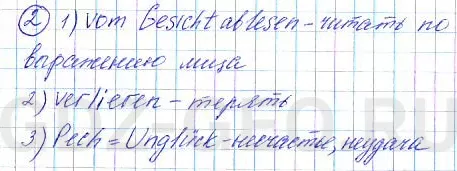 ② 1) vom Gesicht ablesen - читать по
выражению лица
2) verlieren - терять
3) Pech = Unglück - несчастие, неудача